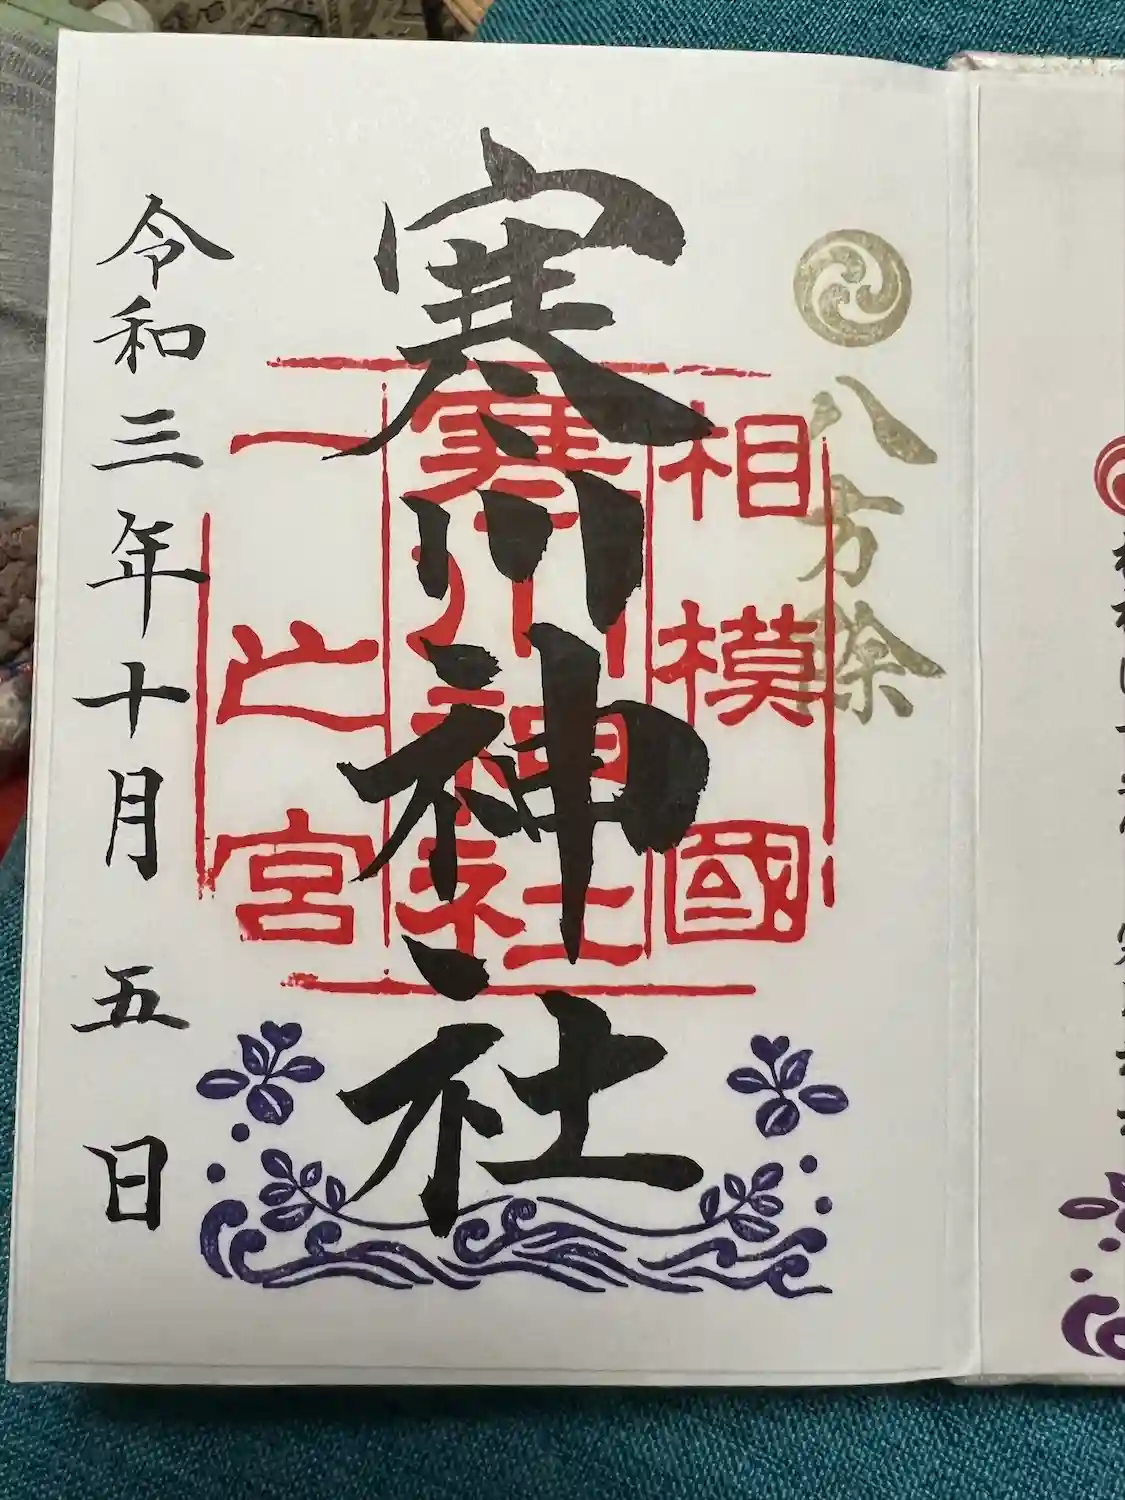 八方除
相模國
寒川神社
一之宮
寒川神社
令和三年十月五日